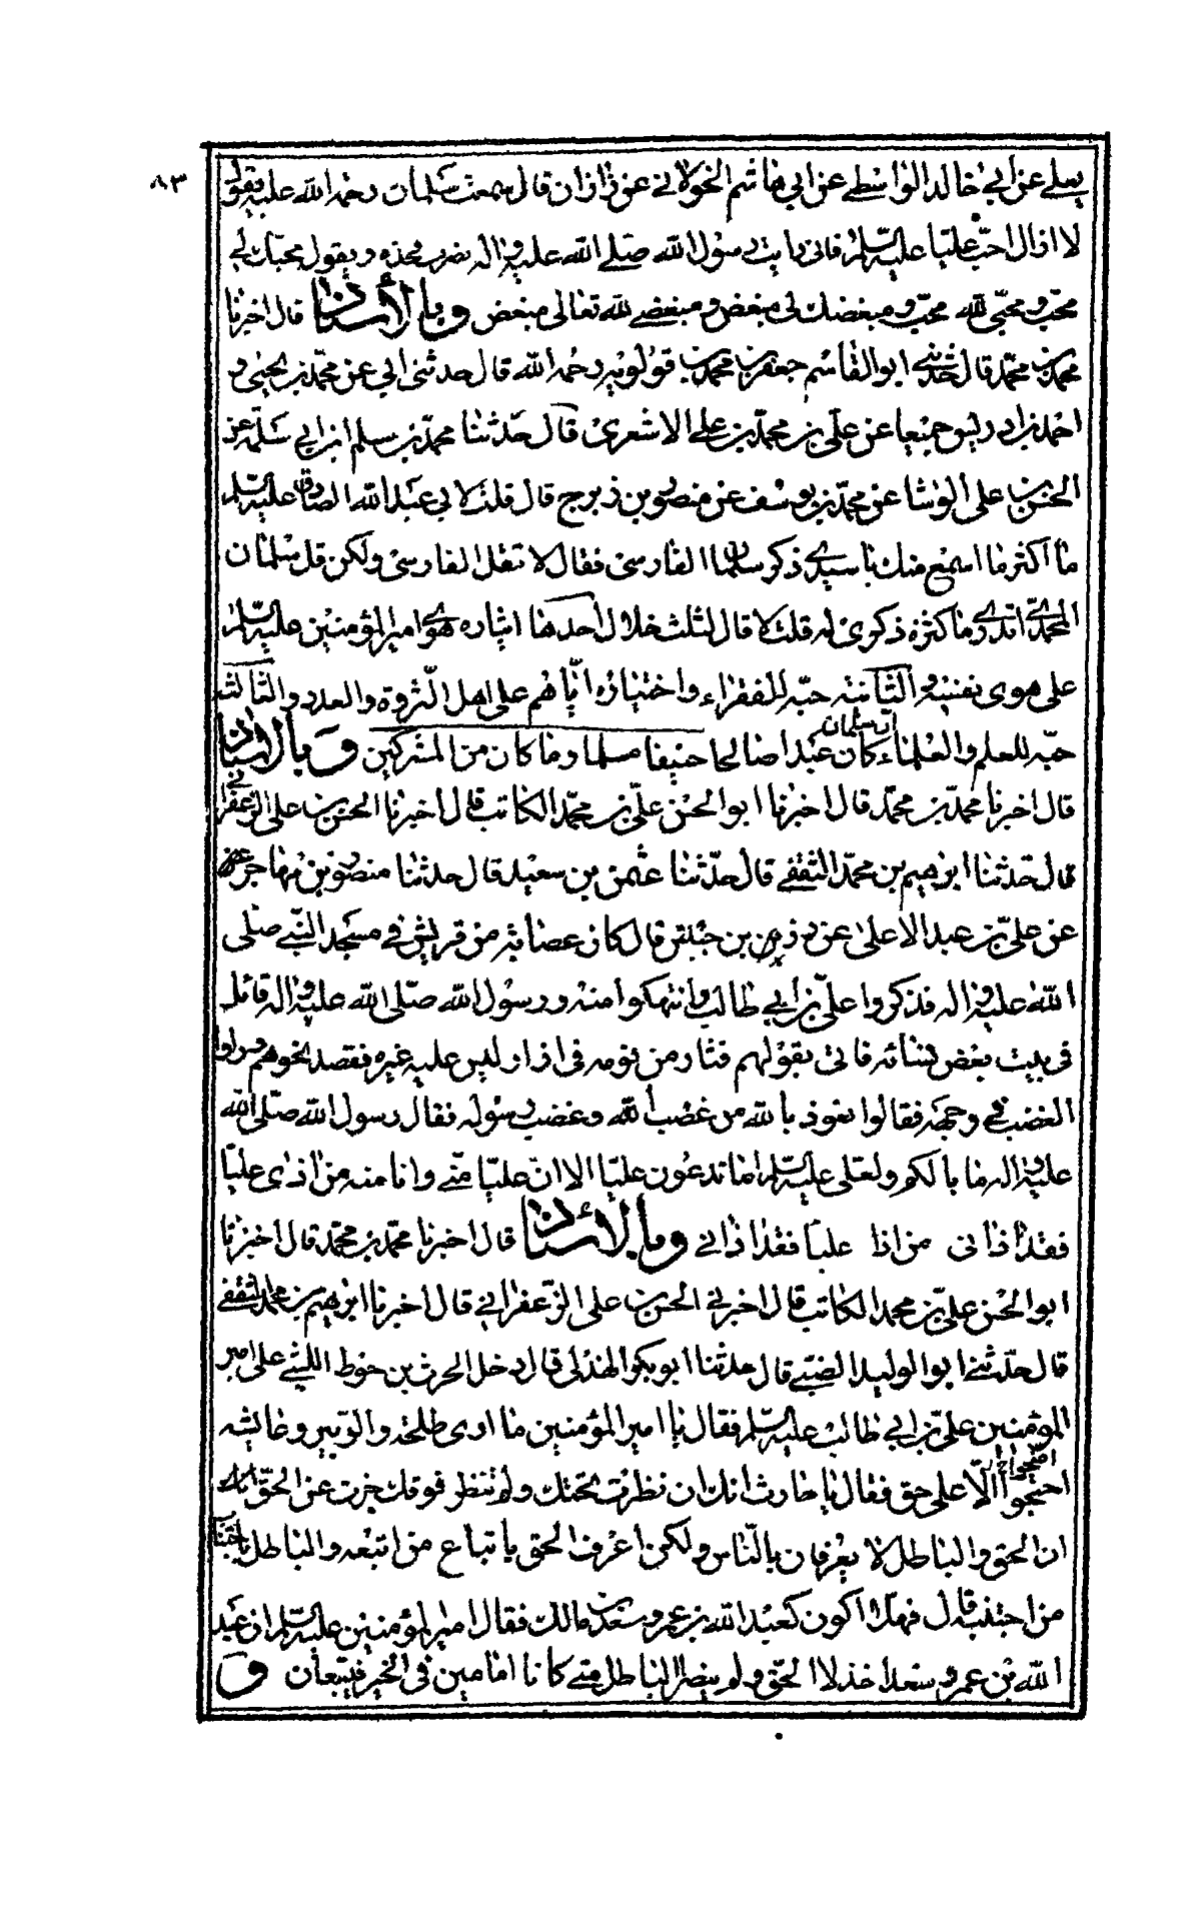 ٨٣
يعلى عن ابي خالد الواسطي عن ابي هاشم الخولاني عن زاذان قال سمعت سلمان رحمه الله عليه يقول
لا ازال احب عليا عليه السلم فاني رايت رسول الله صلى الله عليه واله يضرب فخذه ويقول محبك لي
محب ومحبي لله محب ومبغضك لي مبغض ومبغضي لله تعالى مبغض وبالأسناد قال اخبرنا
محمد بن محمد قال حدثني ابو القاسم جعفر بن محمد بن قولويه رحمه الله قال حدثني ابي عن محمد بن يحيى و
احمد بن ادريس جميعا عن علي بن محمد بن علي الاشعري قال حدثنا محمد بن سلم ابن ابي سلمة عن
الحسن بن علي الوشا عن محمد بن يوسف عن منصور بن بزرج قال قلت لابي عبد الله الصادق عليه السلم
ما اكثر ما اسمع منك يا سيدي ذكر سلمان الفارسي فقال لا تقل الفارسي ولكن قل سلمان
المحمدي اتدري ما كثرة ذكري له قلت لا قال لثلث خلال احدها ايثاره هوى امير المؤمنين عليه السلم
على هوى نفسه والثانية حبه للفقراء واختياره اياهم على اهل الثروة والعدد والثالثة
حبه للعلم والعلماء ان سلمان كان عبدا صالحا حنيفا مسلما وما كان من المشركين وبالأسناد
قال اخبرنا محمد بن محمد قال اخبرنا ابو الحسن علي بن محمد الكاتب قال اخبرنا الحسن بن علي الزعفراني
قال حدثنا ابرهيم بن محمد الثقفي قال حدثنا عثمن بن سعيد قال حدثنا منصور بن مهاجر
عن علي بن عبد الاعلى عن زر بن حبيش قال كان عصابة من قريش في مسجد النبي صلى
الله عليه واله فذكروا علي بن ابي طالب وانتهكوا منه ورسول الله صلى الله عليه واله قائل
في بيت بعض نسائه فاتى بقولهم فثار من نومه في ازار ليس عليه غيره فقصد نحوهم وراوا
الغضب في وجهه فقالوا نعوذ بالله من غضب الله وغضب رسوله فقال رسول الله صلى الله
عليه واله ما بالكم ولعلي عليه السلم اما تدعون عليا الا ان عليا مني وانا منه من اذى عليا
فقد اذاني من اذا عليا فقد اذاني وبالأسناد قال اخبرنا محمد بن محمد قال اخبرنا
ابو الحسن علي بن محمد الكاتب قال اخبرني الحسن بن علي الزعفراني قال اخبرنا ابرهيم بن محمد الثقفي
قال حدثني ابو الوليد الضبي قال حدثنا ابو بكر الهذلي قال دخل الحرث بن حوط الليثي على امير
المؤمنين علي بن ابي طالب عليه السلم فقال يا امير المؤمنين ما ارى طلحة والزبير وعايشه
احتجوا الا على حق فقال يا حارث انك ان نظرت تحتك ولم تنظر فوقك جزت عن الحق
ان الحق والباطل لا يعرفان بالناس ولكن اعرف الحق باتباع من اتبعه والباطل باجتناب
من اجتنبه قال فهلا اكون كعبد الله بن عمر وسعد بن مالك فقال امير المؤمنين عليه السلم ان عبد
الله بن عمر وسعدا خذلا الحق ولم ينصرا الباطل متى كانا امامين في الخير فيتبعان و